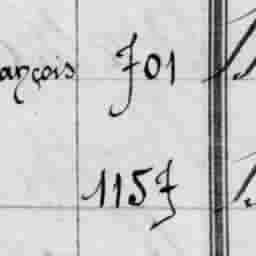 ançois 701
1157